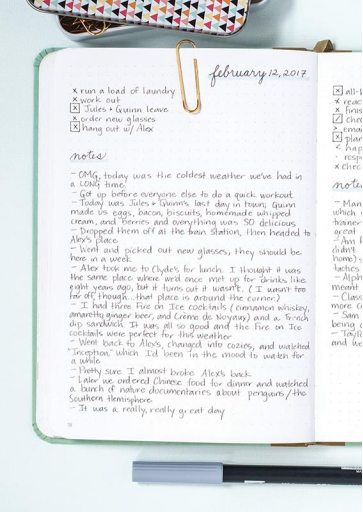 february 12, 2017
x run a load of laundry
x work out
x Jules + Quinn leave
x order new glasses
x hang out w/ Alex
notes
- OMG, today was the coldest weather we've had in
a LONG time.
- Got up before everyone else to do a quick workout
- Today was Jules + Quinn's last day in town; Quinn
made us eggs, bacon, biscuits, homemade whipped
cream, and berries and everything was SO delicious
- Dropped them off at the train station, then headed to
Alex's place
- Went and picked out new glasses, they should be
here in a week
- Alex took me to Clyde's for lunch. I thought it was
the same place where we'd once met up for drinks like
eight years ago, but it turns out it wasn't. (I wasn't too
far off, though...that place is around the corner.)
- I had three Fire on Ice cocktails (cinnamon whiskey,
amaretto, ginger beer, and Crème de Noyaux) and a French
dip sandwich. It was all so good and the Fire on Ice
cocktails were perfect for this weather
- Went back to Alex's, changed into cozies, and watched
"Inception," which I'd been in the mood to watch for
a while
- Pretty sure I almost broke Alex's back
- Later we ordered Chinese food for dinner and watched
a bunch of nature documentaries about penguins/the
Southern Hemisphere
- It was a really, really great day
x all-
x reac
x finis
/ che
> emai
x plan
< hap
respo
x chec
notes
- Man
which
great
- Ann
didn't
home)
tactics
- Alph
meant
- Class
more c
- Sam
being
- Taylo
and we